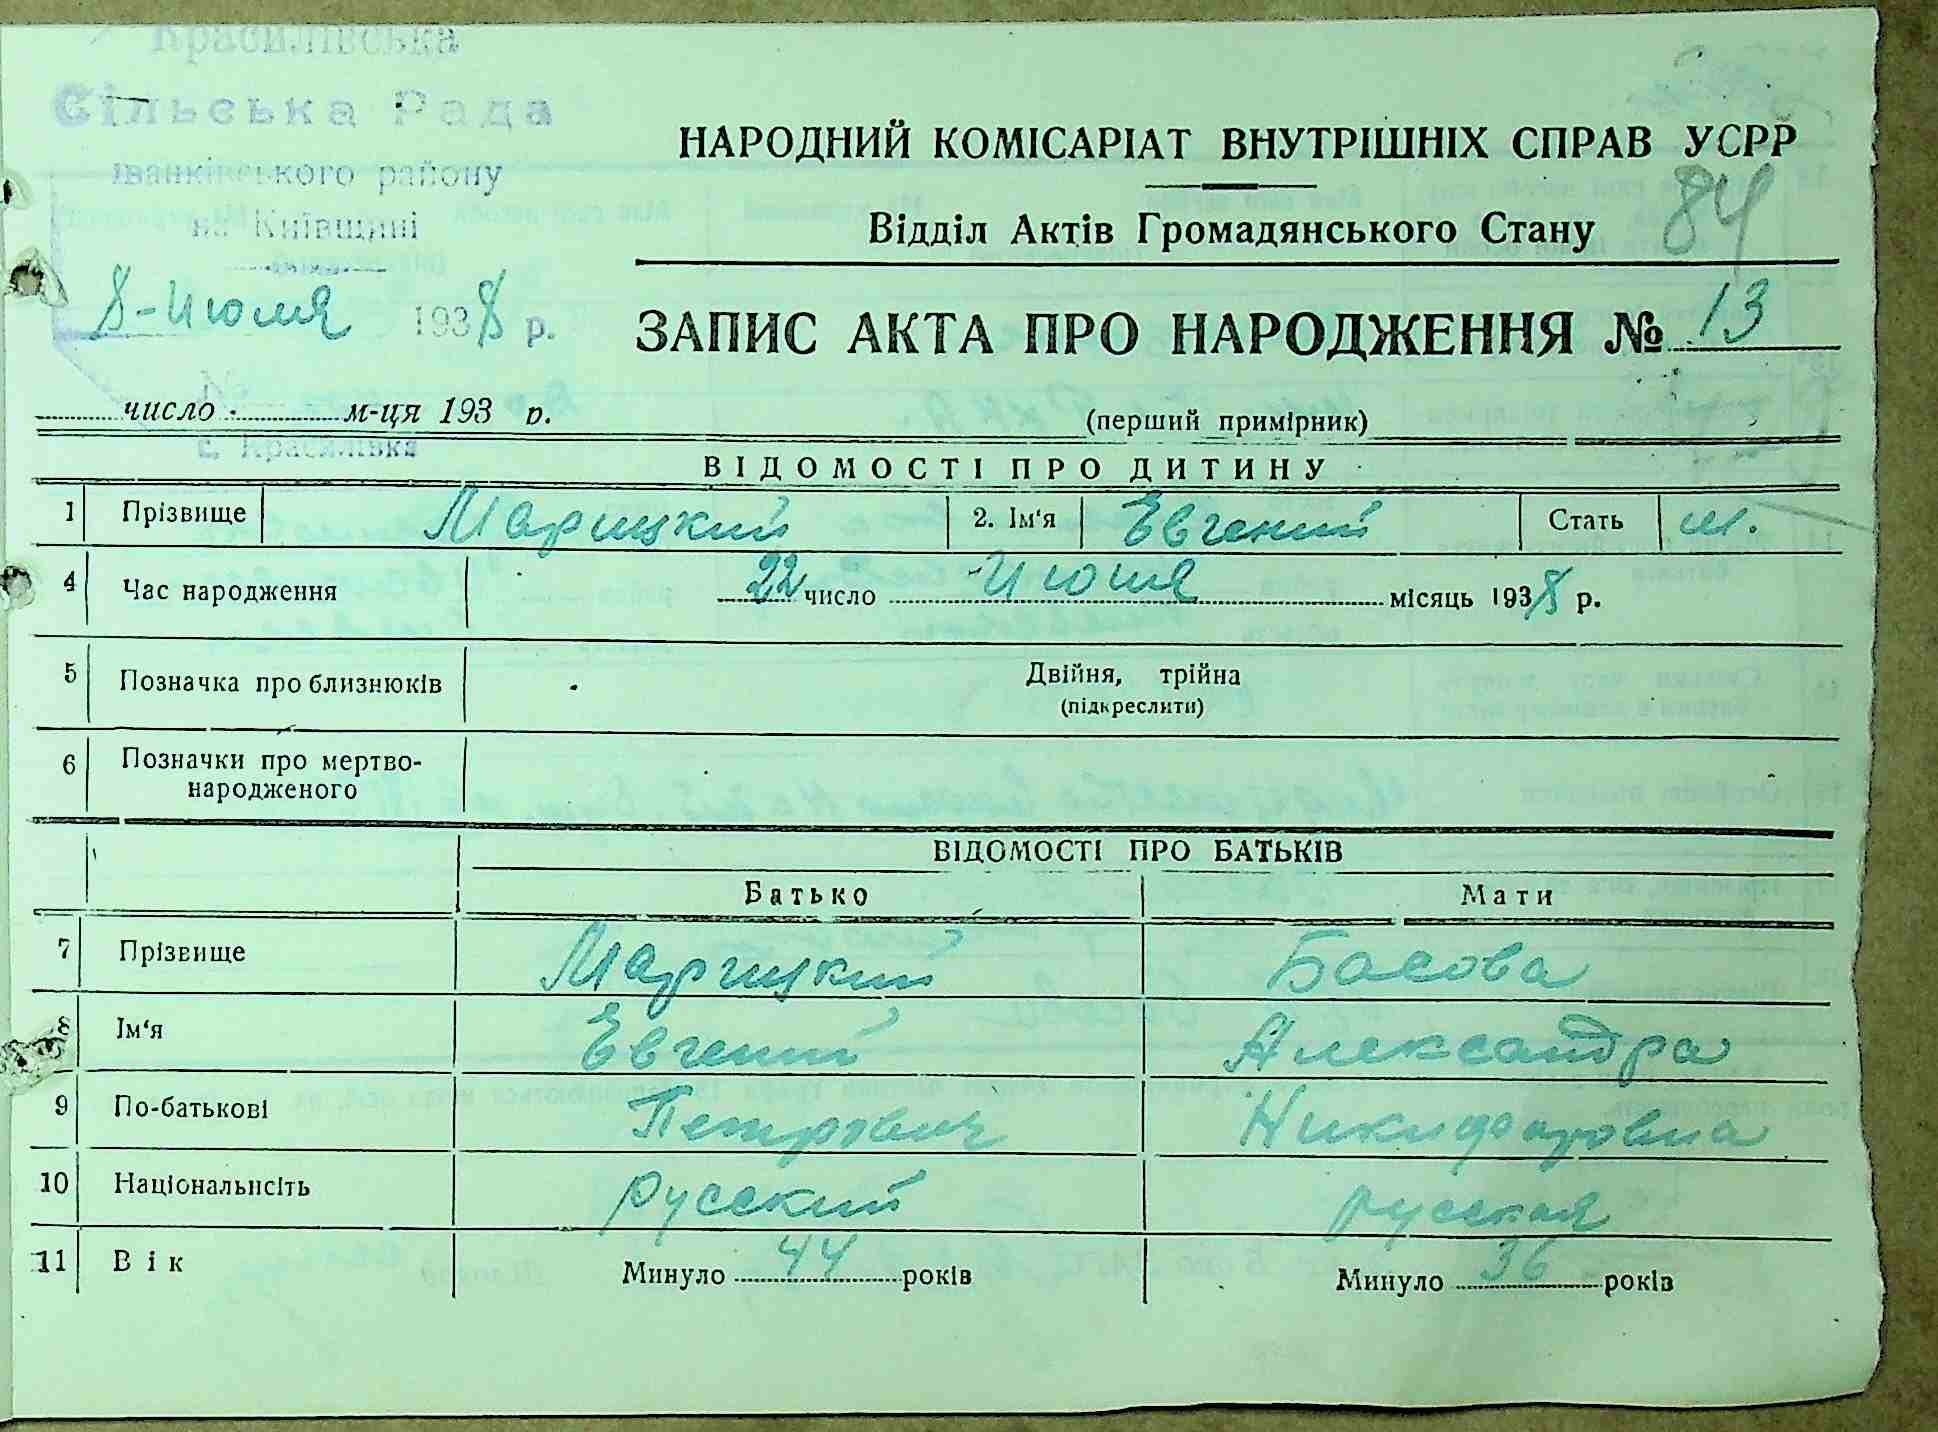 Красилівська
Сільська Рада
Іванківського району
на Київщині
8-Июля 1938 р.
НАРОДНИЙ КОМІСАРІАТ ВНУТРІШНІХ СПРАВ УСРР
84
Відділ Актів Громадянського Стану
ЗАПИС АКТА ПРО НАРОДЖЕННЯ № 13
число м-ця 193 р.
(перший примірник)
с. Красилівка
ВІДОМОСТІ ПРО ДИТИНУ
1 Прізвище Марицкий 2. Ім'я Евгений Стать м.
4 Час народження 22 число Июня місяць 1938 р.
5 Позначка про близнюків Двійня, трійна
(підкреслити)
6 Позначки про мертво-
народженого
ВІДОМОСТІ ПРО БАТЬКІВ
Батько Мати
7 Прізвище Марицкий Басова
8 Ім'я Евгений Александра
9 По-батькові Петрович Никифоровна
10 Національність русский русская
11 Вік Минуло 44 років Минуло 36 років